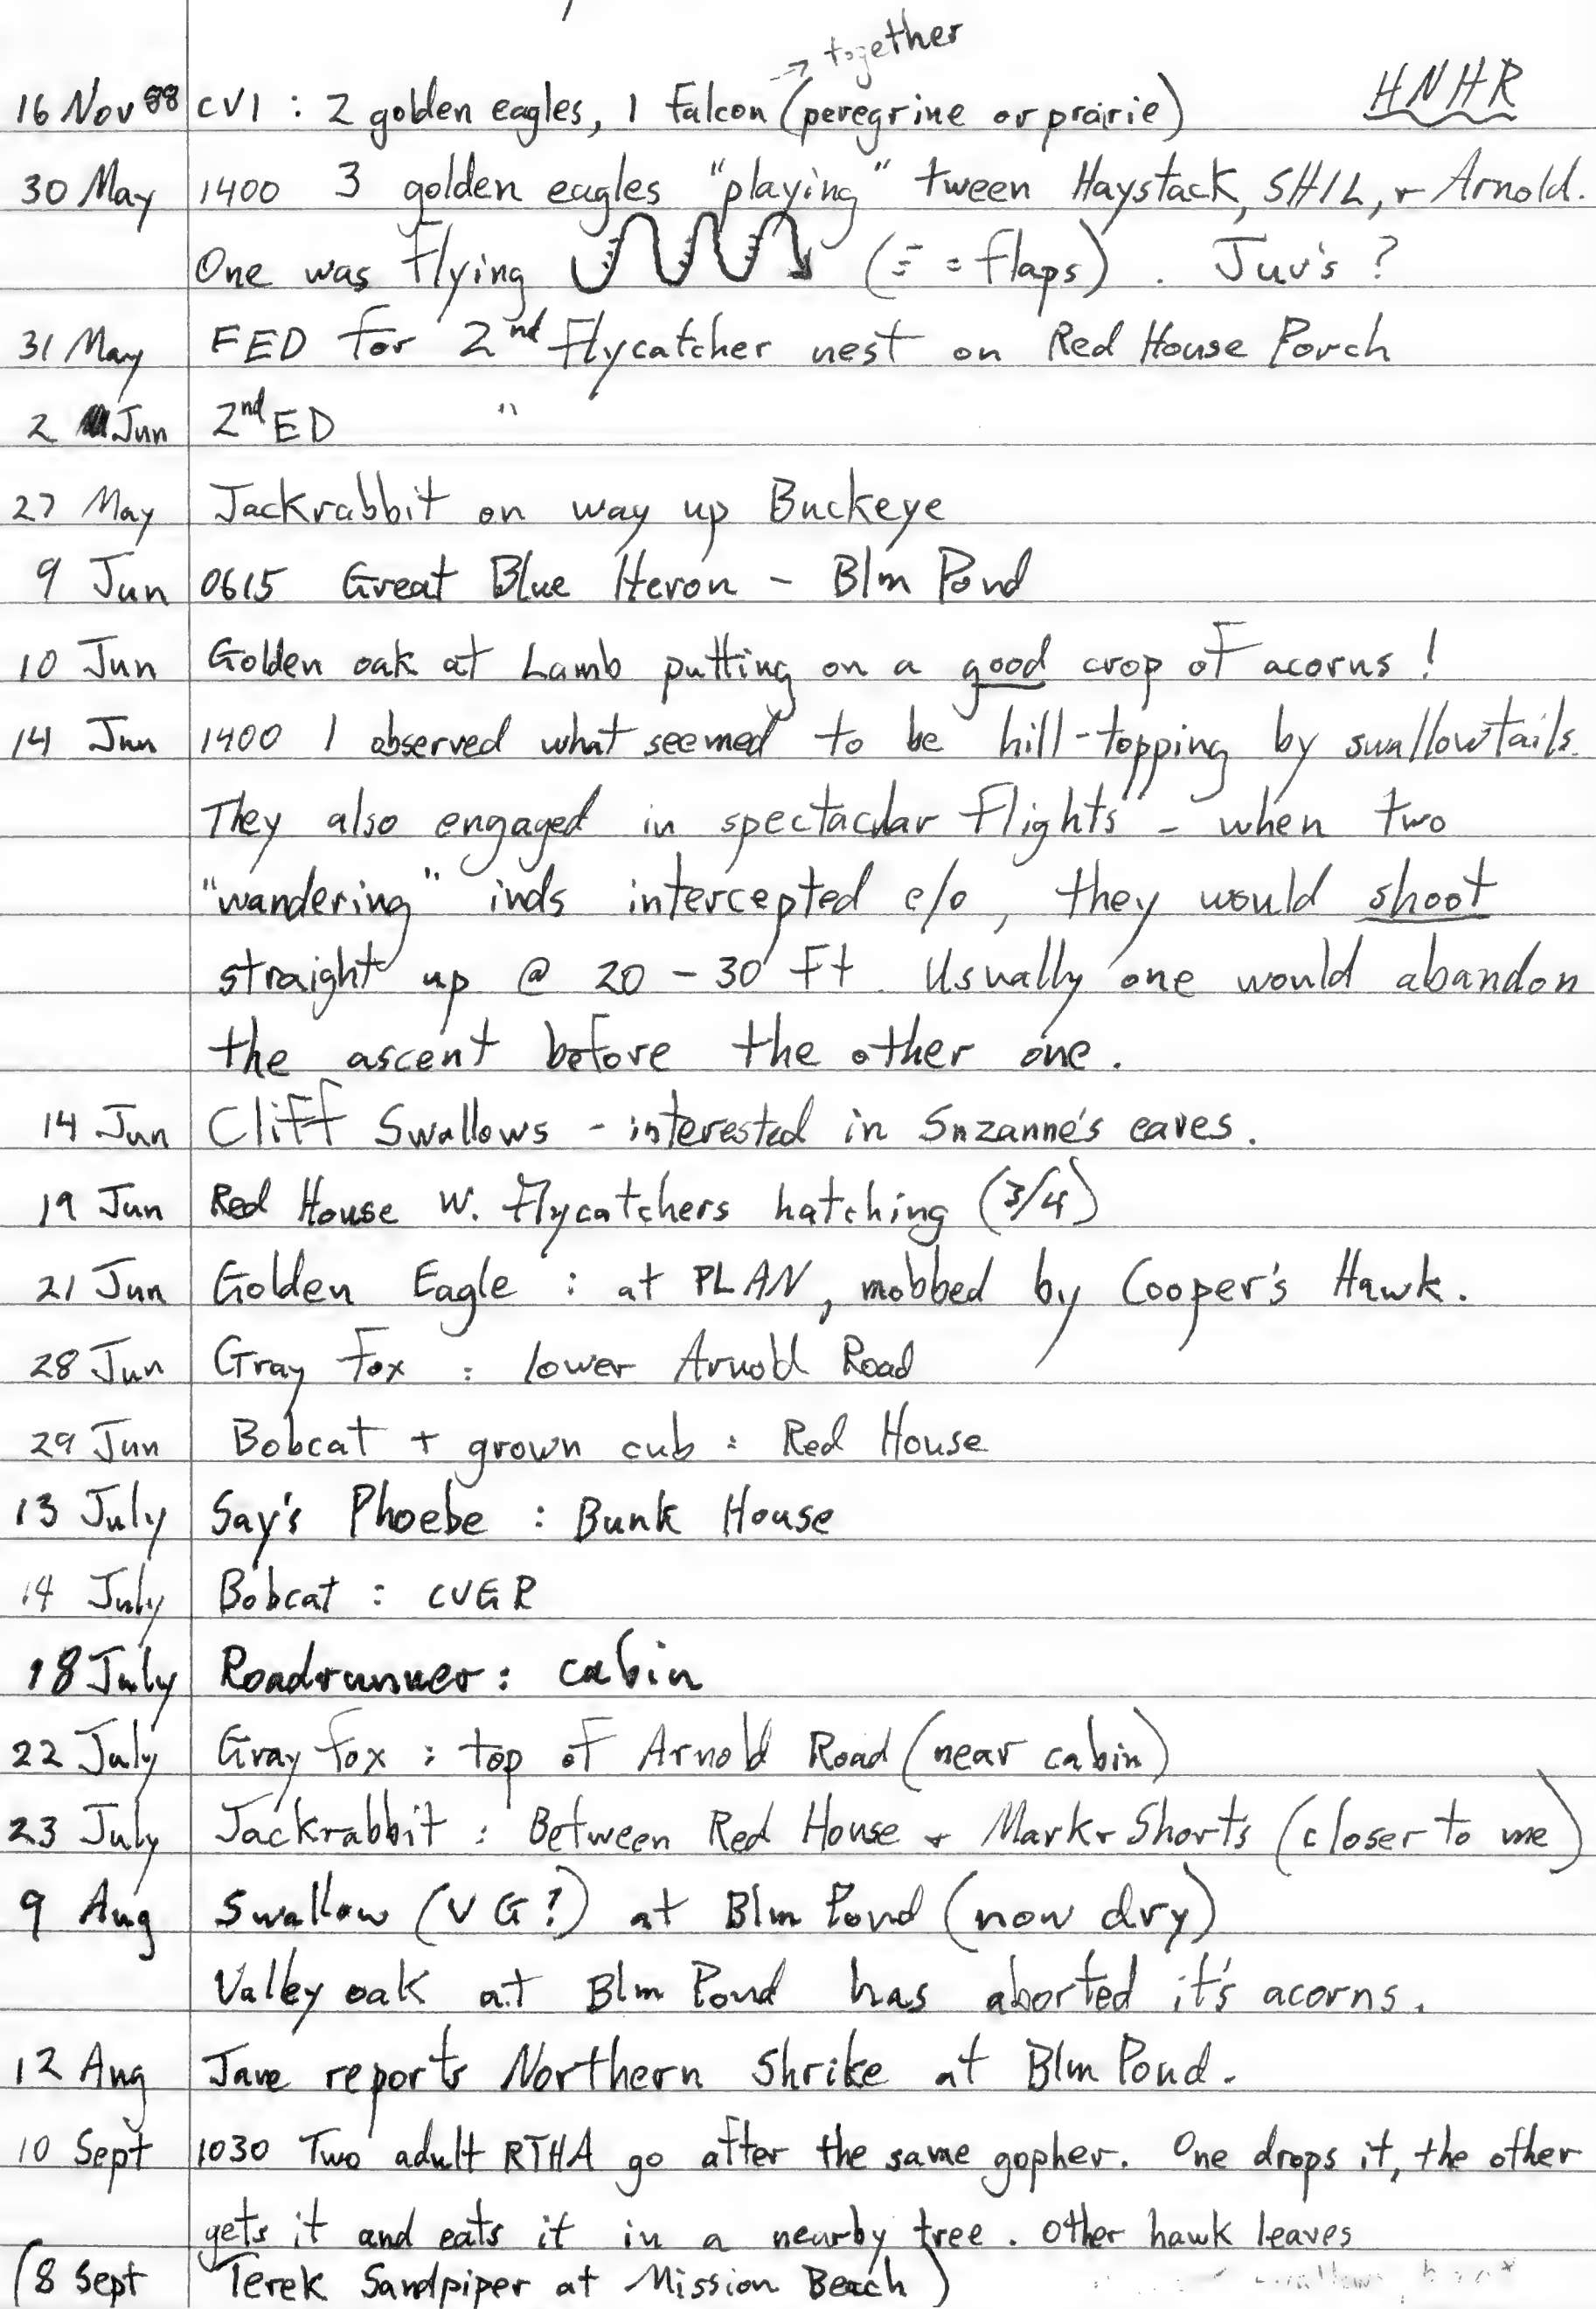 → together
HNHR
16 Nov 88 CV1 : 2 golden eagles, 1 falcon (peregrine or prairie)
30 May 1400 3 golden eagles "playing" tween Haystack, SHIL, + Arnold.
One was flying (= flaps). Juv's ?
31 May FED for 2nd flycatcher nest on Red House Porch
2 Jun 2nd ED "
27 May Jackrabbit on way up Buckeye
9 Jun 0615 Great Blue Heron - Blm Pond
10 Jun Golden oak at Lamb putting on a good crop of acorns !
14 Jun 1400 I observed what seemed to be hill-topping by swallowtails.
They also engaged in spectacular flights - when two
"wandering" inds intercepted e/o, they would shoot
straight up @ 20 - 30 ft. Usually one would abandon
the ascent before the other one.
14 Jun Cliff Swallows - interested in Suzanne's eaves.
19 Jun Red House W. Flycatchers hatching (3/4)
21 Jun Golden Eagle : at PLAN, mobbed by Cooper's Hawk.
28 Jun Gray Fox : lower Arnold Road
29 Jun Bobcat + grown cub : Red House
13 July Say's Phoebe : Bunk House
14 July Bobcat : CVGR
18 July Roadrunner : cabin
22 July Gray fox : top of Arnold Road (near cabin)
23 July Jackrabbit : Between Red House + Mark + Shorts (closer to me)
9 Aug Swallow (VG?) at Blm Pond (now dry)
Valley oak at Blm Pond has aborted it's acorns.
12 Aug reports Northern Shrike at Blm Pond.
10 Sept 1030 Two adult RTHA go after the same gopher. One drops it, the other
gets it and eats it in a nearby tree. Other hawk leaves
(8 Sept Terek Sandpiper at Mission Beach)